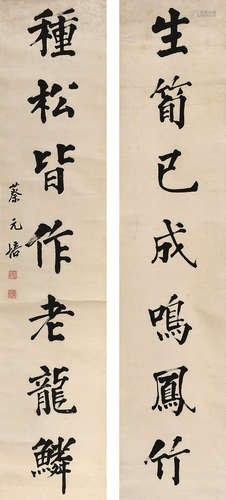 生筍已成鳴鳳竹
種松皆作老龍鱗
蔡元培